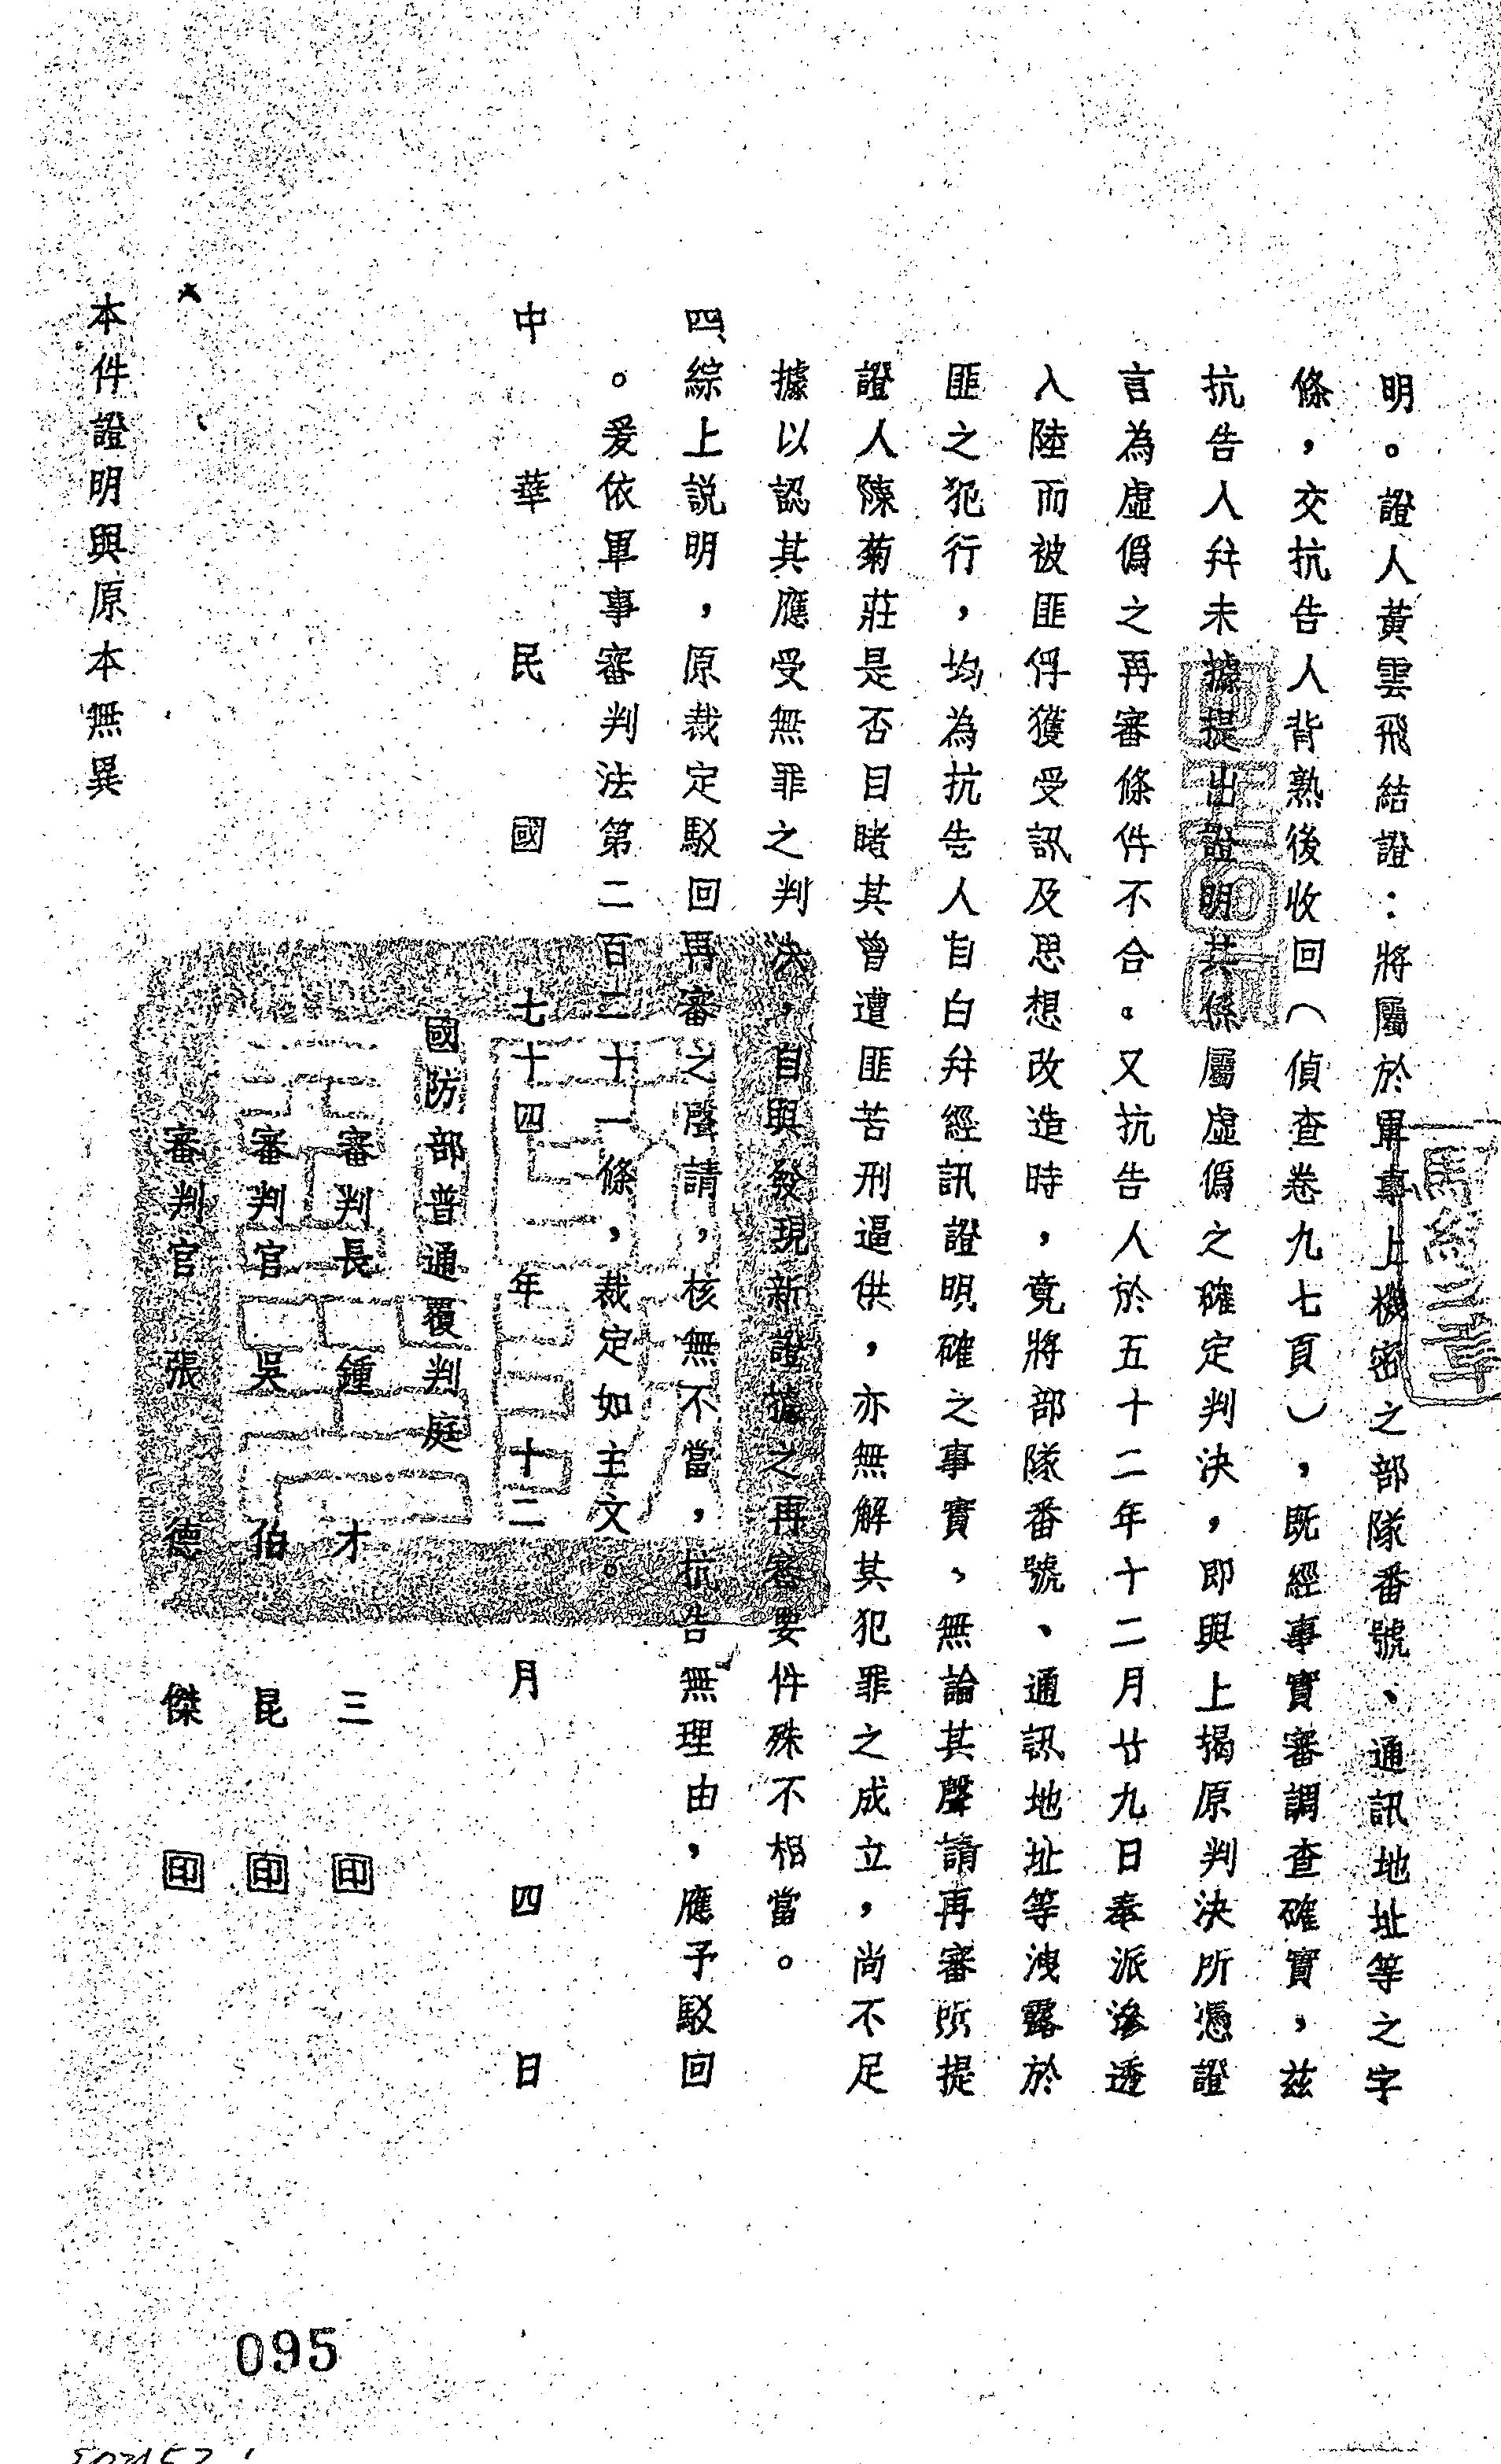 明。證人黃雲飛結證：將屬於軍事上機密之部隊番號、通訊地址等之字
條，交抗告人背熟後收回（偵查卷九七頁），既經事實審調查確實，茲
抗告人幷未據提出證明其係屬虛偽之確定判決，即與上揭原判決所憑證
言為虛偽之再審條件不合。又抗告人於五十二年十二月廿九日奉派滲透
入陸而被匪俘獲受訊及思想改造時，竟將部隊番號、通訊地址等洩露於
匪之犯行，均為抗告人自白幷經訊證明確之事實、無論其聲請再審所提
證人陳菊莊是否目睹其曾遭匪苦刑逼供，亦無解其犯罪之成立，尚不足
據以認其應受無罪之判決，自與發現新證據之再審要件殊不相當。
四、綜上說明，原裁定駁回再審之聲請，核無不當，抗告無理由，應予駁回
。爰依軍事審判法第二百二十一條，裁定如主文。
中華民國七十四年十二月四日
國防部普通覆判庭
審判長 鍾才三 印
審判官 吳伯昆 印
審判官 張德傑 印
本件證明與原本無異
095